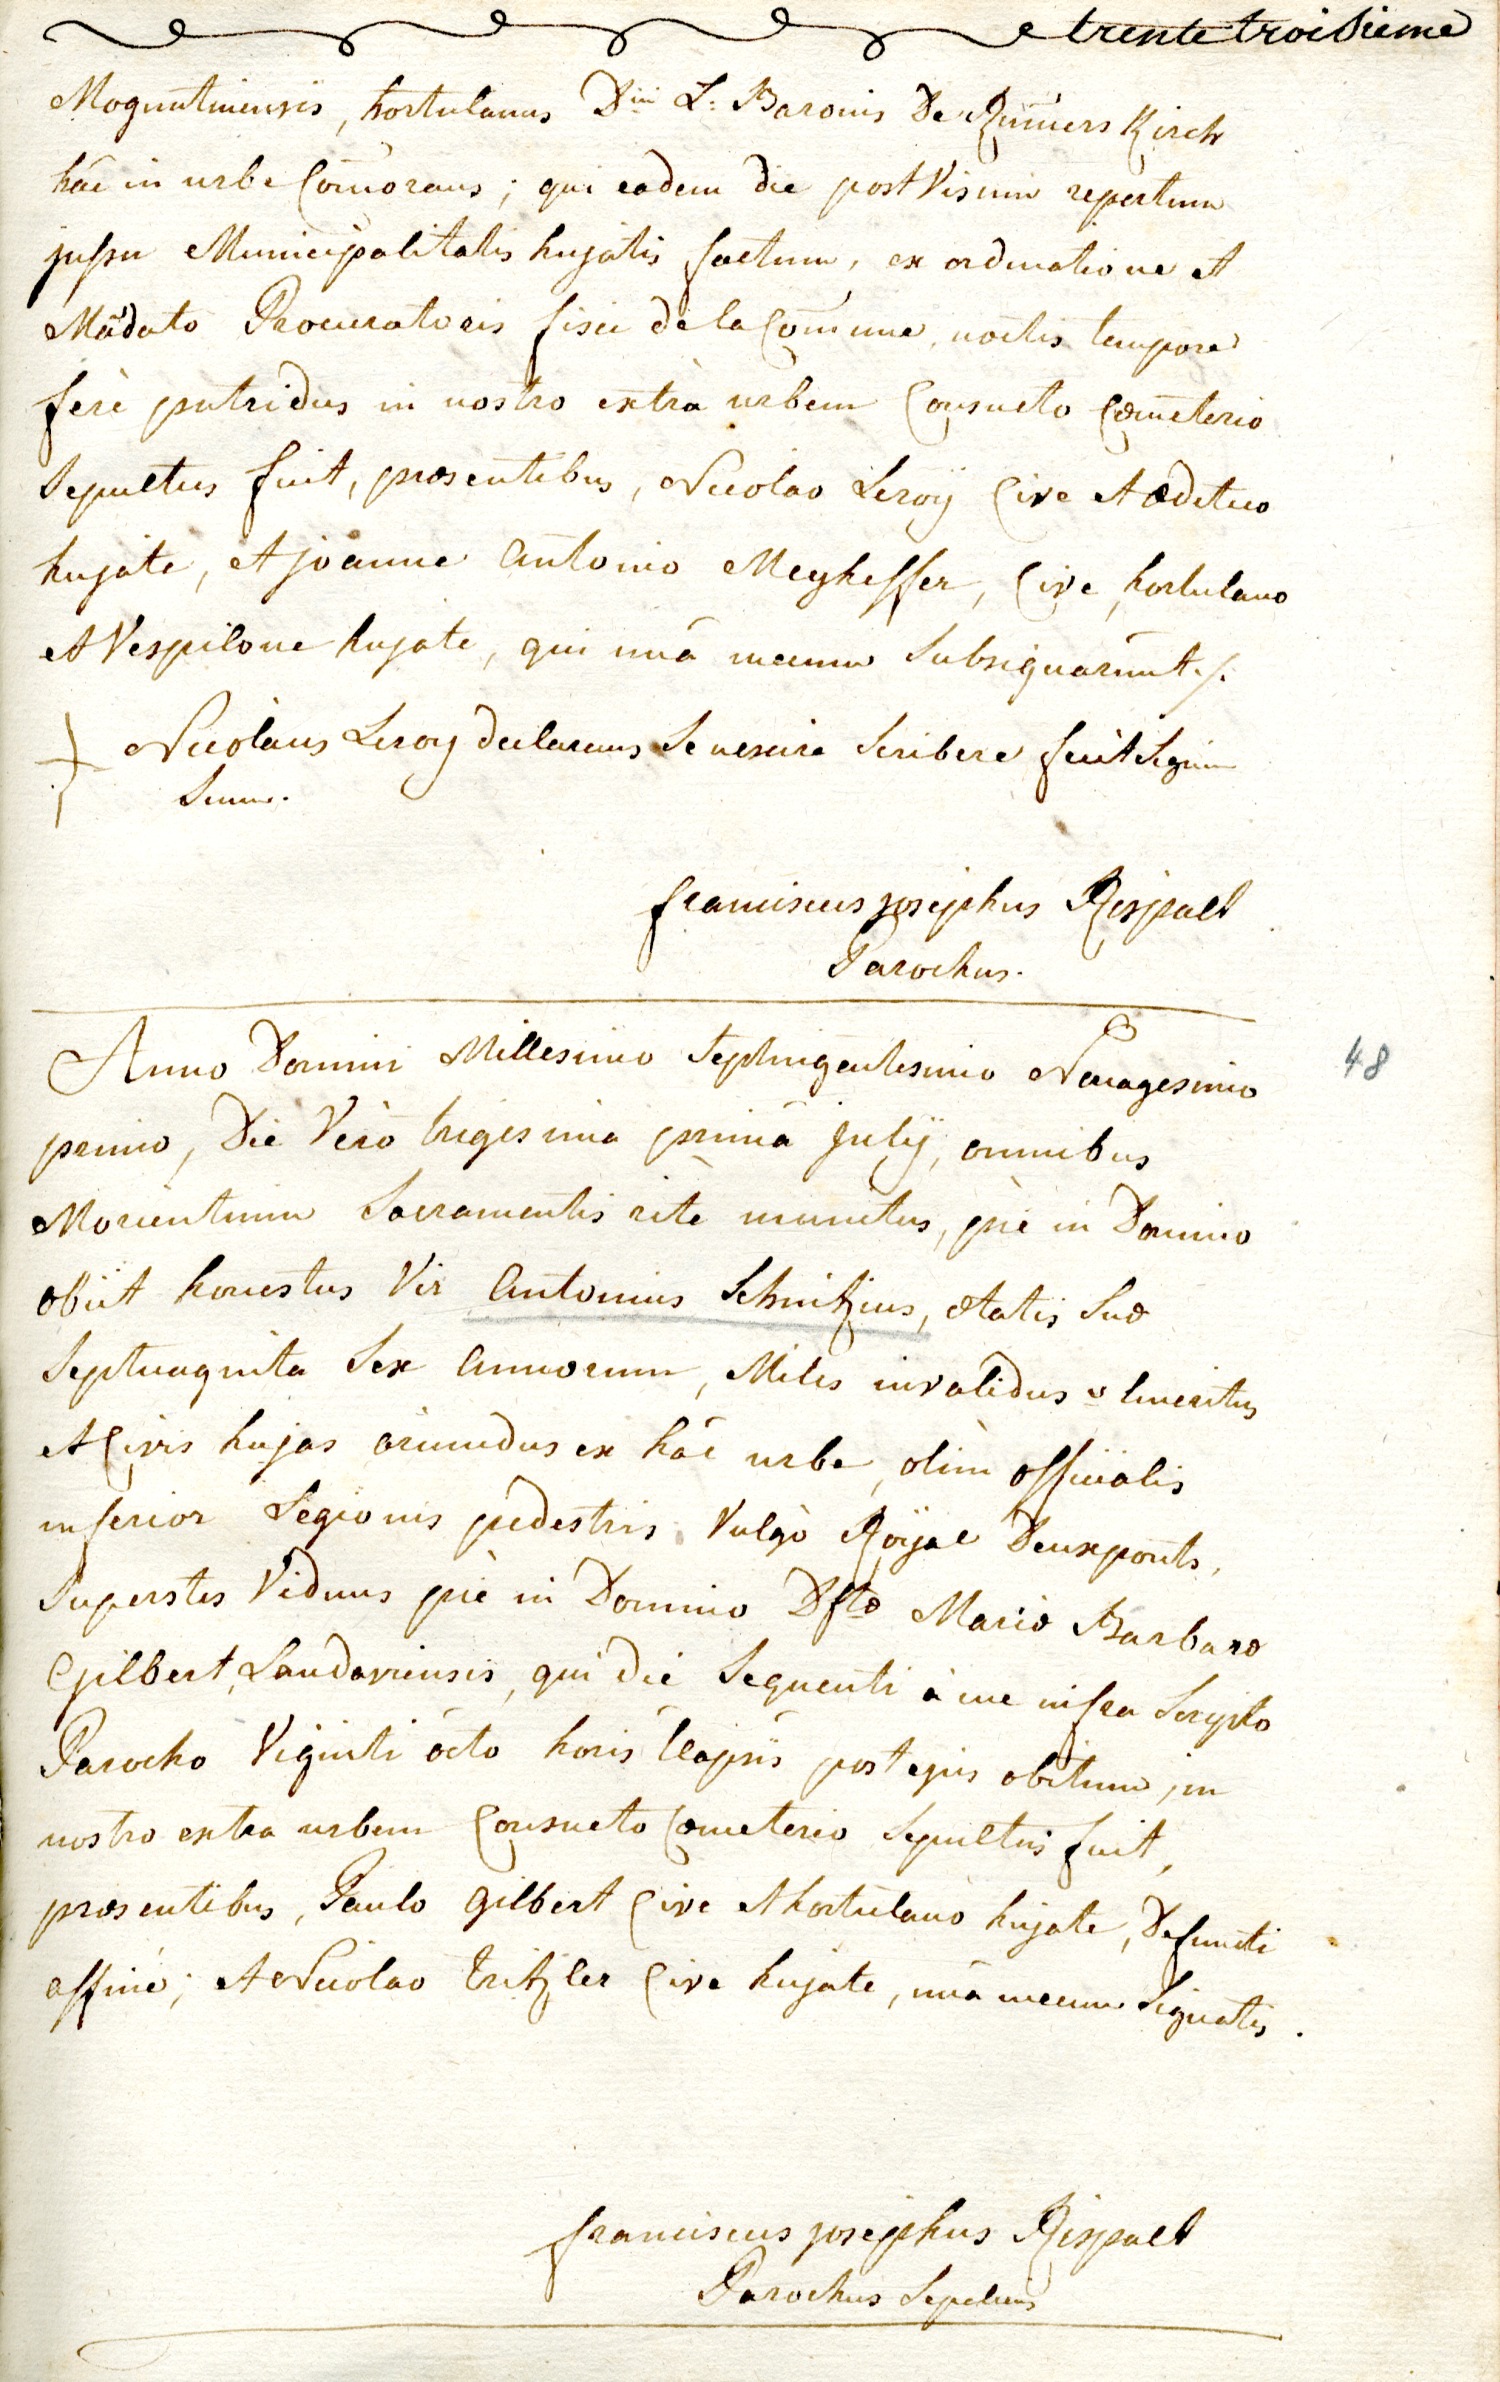 trente troisieme
Moguntinensis, hortulanus Dni L: Baronis De Rumers Kirch
hâc in urbe Com̄orans; qui eadem die post Visum repertum
jussu Municipalitatis hujatis factum, ex ordinatione et
Mādato Procuratoris fisci de la Com̄une, noctis tempore
ferè putridus in nostro extrà urbem Consueto Cœmeterio
Sepultus fuit, præsentibus, Nicolao Leroÿ Cive et ædituo
hujate, et joanne Antonio Meyheffer, Cive, hortulano
et Vespilone hujate, qui unâ mecum Subsignarunt ./.
Nicolaus Leroy declarans Se nescire Scribere fecit Signum
Suum.
franciscus josephus Rispalt
Parochus.
48
Anno Domini Millesimo Septingentesimo Nonagesimo
primo, Die Verò trigesima primâ julÿ, omnibus
Morientium Sacramentis ritè munitus, piè in Domino
obiit honestus Vir Antonius Schnitzius, ætatis Suæ
Septuaginta Sex Annorum, Miles invalidus emeritus
et Civis hujas oriundus ex hâc urbe, olim officialis
inferior Legionis pedestris Vulgò Roÿal Deuxponts,
Superstes Viduus piè in Domino Dftæ Mariæ Barbaræ
Gilbert, Landaviensis, qui die Sequenti à me infra Scripto
Parocho Viginti octo horis elapsis post ejus obitum, in
nostro extra urbem Consueto Cœmeterio Sepultus fuit,
præsentibus, Paulo Gilbert Cive et hortulano hujate, Defuncti
affine; et Nicolao Tritzler Cive hujate, unâ mecum Signatis.
franciscus josephus Rispalt
Parochus Sepeliens